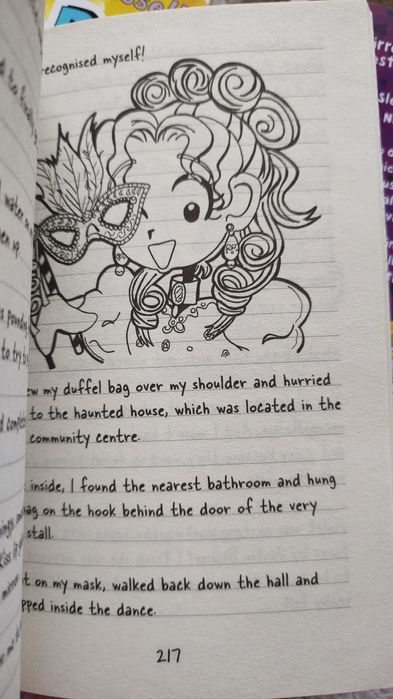 recognised myself!
my duffel bag over my shoulder and hurried
to the haunted house, which was located in the
community centre.
inside, I found the nearest bathroom and hung
bag on the hook behind the door of the very
stall.
on my mask, walked back down the hall and
inside the dance.
217